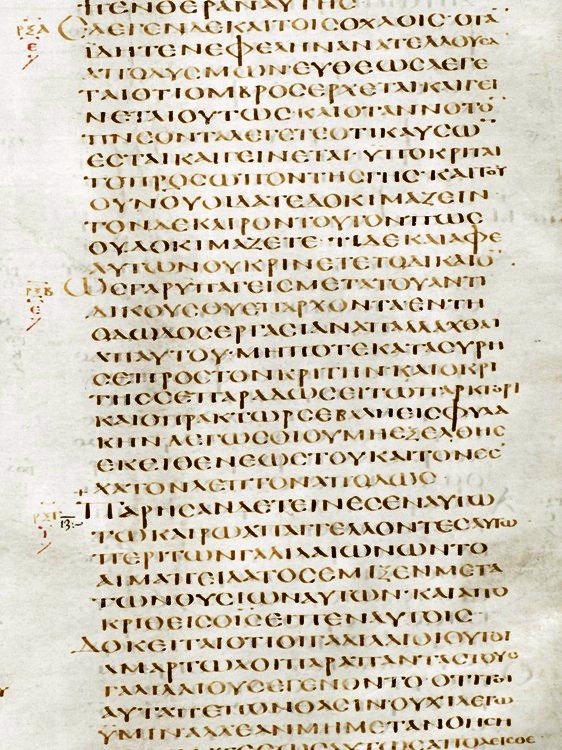 ΠΕΝΘΕΡΑΝΑΥΤΗϹ
ΕΛΕΓΕΝΔΕΚΑΙΤΟΙϹΟΧΛΟΙϹΟΤΑ̅
ΪΔΗΤΕΝΕΦΕΛΗΝΑΝΑΤΕΛΛΟΥϹΑ
ΑΠΟΔΥϹΜΩΝΕΥΘΕΩϹΛΕΓΕ
ΤΑΙΟΤΙΟΜΒΡΟϹΕΡΧΕΤΑΙΚΑΙΓΕΙ
ΝΕΤΑΙΟΥΤΩϹΚΑΙΟΤΑΝΝΟΤΟ̅
ΠΝΕΟΝΤΑΛΕΓΕΤΕΟΤΙΚΑΥϹΩ̅
ΕϹΤΑΙΚΑΙΓΕΙΝΕΤΑΙ·ΥΠΟΚΡΙΤΑΙ
ΤΟΠΡΟϹΩΠΟΝΤΗϹΓΗϹ·ΚΑΙΤΟΥ
ΟΥΝΟΥΟΙΔΑΤΕΔΟΚΙΜΑΖΕΙΝ
ΤΟΝΔΕΚΑΙΡΟΝΤΟΥΤΟΝΠΩϹ
ΟΥΔΟΚΙΜΑΖΕΤΕ·ΤΙΔΕΚΑΙΑΦΕ
ΑΥΤΩΝΟΥΚΡΙΝΕΤΕΤΟΔΙΚΑΙΟ̅
ΩϹΓΑΡΥΠΑΓΕΙϹΜΕΤΑΤΟΥΑΝΤΙ
ΔΙΚΟΥϹΟΥΕΠΑΡΧΟΝΤΑΕΝΤΗ
ΟΔΩΔΟϹΕΡΓΑϹΙΑΝΑΠΑΛΛΑΧΘΑΙ
ΑΠΑΥΤΟΥ·ΜΗΠΟΤΕΚΑΤΑϹΥΡΗ
ϹΕΠΡΟϹΤΟΝΚΡΙΤΗΝ·ΚΑΙΟΚΡΙ
ΤΗϹϹΕΠΑΡΑΔΩϹΕΙΤΩΠΡΑΚΤΟΡΙ
ΚΑΙΟΠΡΑΚΤΩΡϹΕΒΑΛΗΕΙϹΦΥΛΑ
ΚΗΝΛΕΓΩϹΟΙΟΥΜΗΕΞΕΛΘΗϹ
ΕΚΕΙΘΕΝΕΩϹΤΟΥΚΑΙΤΟΝΕϹ
ΧΑΤΟΝΛΕΠΤΟΝΑΠΟΔΩϹ
ΠΑΡΗϹΑΝΔΕΤΕΙΝΕϹΕΝΑΥΤΩ
ΤΩΚΑΙΡΩΑΠΑΓΓΕΛΛΟΝΤΕϹΑΥΤΩ
ΠΕΡΙΤΩΝΓΑΛΙΛΑΙΩΝΩΝΤΟ
ΑΙΜΑΠΕΙΛΑΤΟϹΕΜΙΞΕΝΜΕΤΑ
ΤΩΝΘΥϹΙΩΝΑΥΤΩΝ·ΚΑΙΑΠΟ
ΚΡΙΘΕΙϹΟΙϹΕΙΠΕΝΑΥΤΟΙϹ
ΔΟΚΕΙΤΑΙΟΤΙΟΙΓΑΛΙΛΑΙΟΙΟΥΤΟΙ
ΑΜΑΡΤΩΛΟΙΠΑΡΑΠΑΝΤΑϹΤΟΥϹ
ΓΑΛΙΛΑΙΟΥϹΕΓΕΝΟΝΤΟ·ΟΤΙΤΑ
ΑΥΤΑΠΕΠΟΝΘΑϹΙΝΟΥΧΙΛΕΓΩ
ΥΜΙΝΑΛΛΕΑΝΜΗΜΕΤΑΝΟΗϹΗ